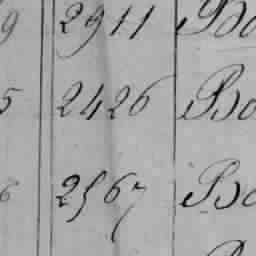 9 2911 Bo
5 2426 Bo
6 2567 Bo